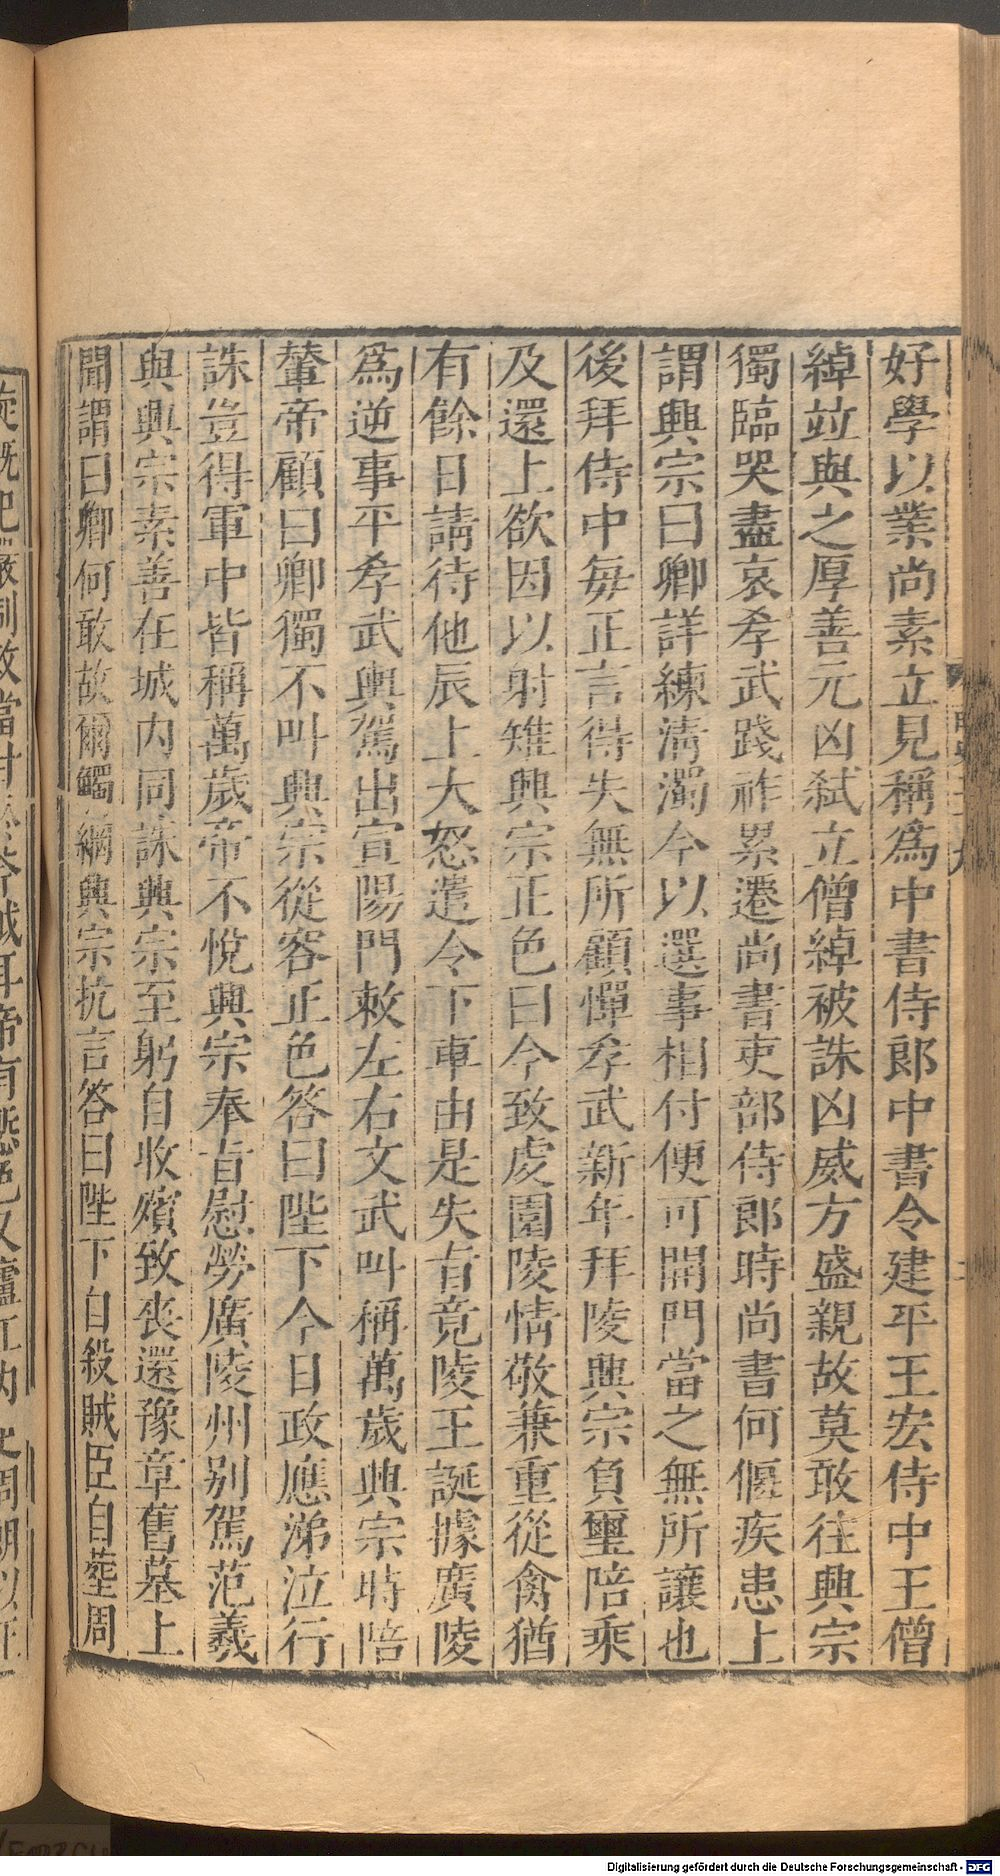 好學以業尚素立見稱爲中書侍郎中書令建平王宏侍中王僧
綽竝與之厚善元凶弑立僧綽被誅凶威方盛親故莫敢往興宗
獨臨哭盡哀孝武踐祚累遷尚書吏部侍郎時尚書何偃疾患上
謂興宗曰卿詳練淸濁今以選事相付便可開門當之無所讓也
後拜侍中每正言得失無所顧憚孝武新年拜陵興宗負璽陪乘
及還上欲因以射雉興宗正色曰今致虔園陵情敬兼重從禽猶
有餘日請待他辰上大怒遣令下車由是失旨竟陵王誕據廣陵
爲逆事平孝武輿駕出宣陽門敕左右文武叫稱萬歲興宗時陪
輦帝顧曰卿獨不叫興宗從容正色答曰陛下今日政應涕泣行
誅豈得軍中皆稱萬歲帝不悅興宗奉旨慰勞廣陵州别駕范義
與興宗素善在城内同誅興宗至躬自收殯致喪還豫章舊墓上
聞謂曰卿何敢故爾觸網興宗抗言答曰陛下自殺賊臣自葬周
Digitalisierung gefördert durch die Deutsche Forschungsgemeinschaft - DFG